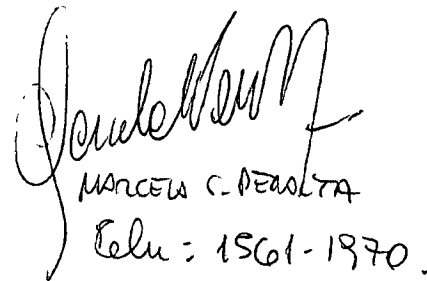 MARCELA C. PERALTA
Celu = 1561-1970.